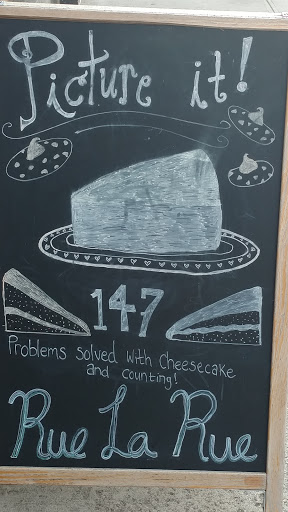 Picture it!
147
Problems solved with Cheesecake
and counting!
Rue La Rue